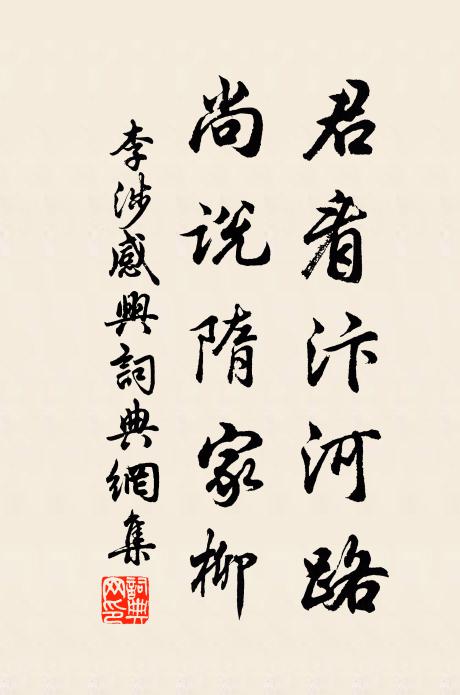 君看汴河路
尚说隋家柳
李涉感興詞典網集
詞典网印